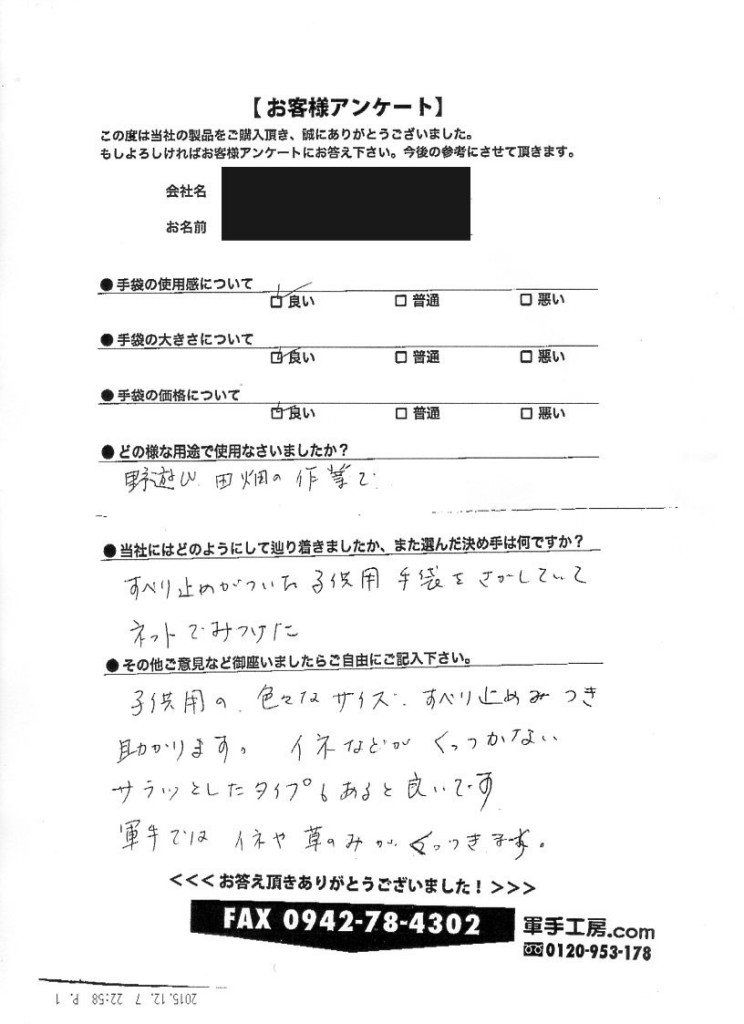 【お客様アンケート】
この度は当社の製品をご購入頂き、誠にありがとうございました。
もしよろしければお客様アンケートにお答え下さい。今後の参考にさせて頂きます。
会社名
お名前
●手袋の使用感について
□良い □普通 □悪い
●手袋の大きさについて
□良い □普通 □悪い
●手袋の価格について
□良い □普通 □悪い
●どの様な用途で使用なさいましたか？
野遊び、田畑の作業で
●当社にはどのようにして辿り着きましたか、また選んだ決め手は何ですか？
すべり止めがついた子供用手袋をさがしていて
ネットでみつけた
●その他ご意見など御座いましたらご自由にご記入下さい。
子供用の、色々なサイズ、すべり止めみつき
助かります。イネなどがくっつかない
サラッとしたタイプもあると良いです
軍手ではイネや草のみがくっつきます。
<<<お答え頂きありがとうございました！>>>
FAX 0942-78-4302
軍手工房.com
0120-953-178
2015.12.7 22:58 P.1